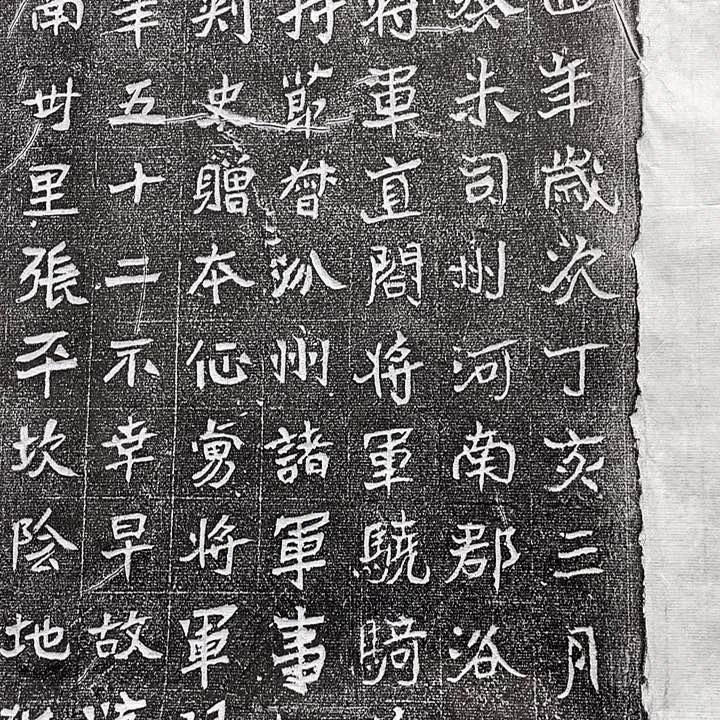 四年歲次丁亥三月
米司州河南郡洛
將軍直閤將軍驍騎
持節督州諸軍事
刺史贈本征虜將軍
年五十二不幸早故
南丗里張平坎陰地